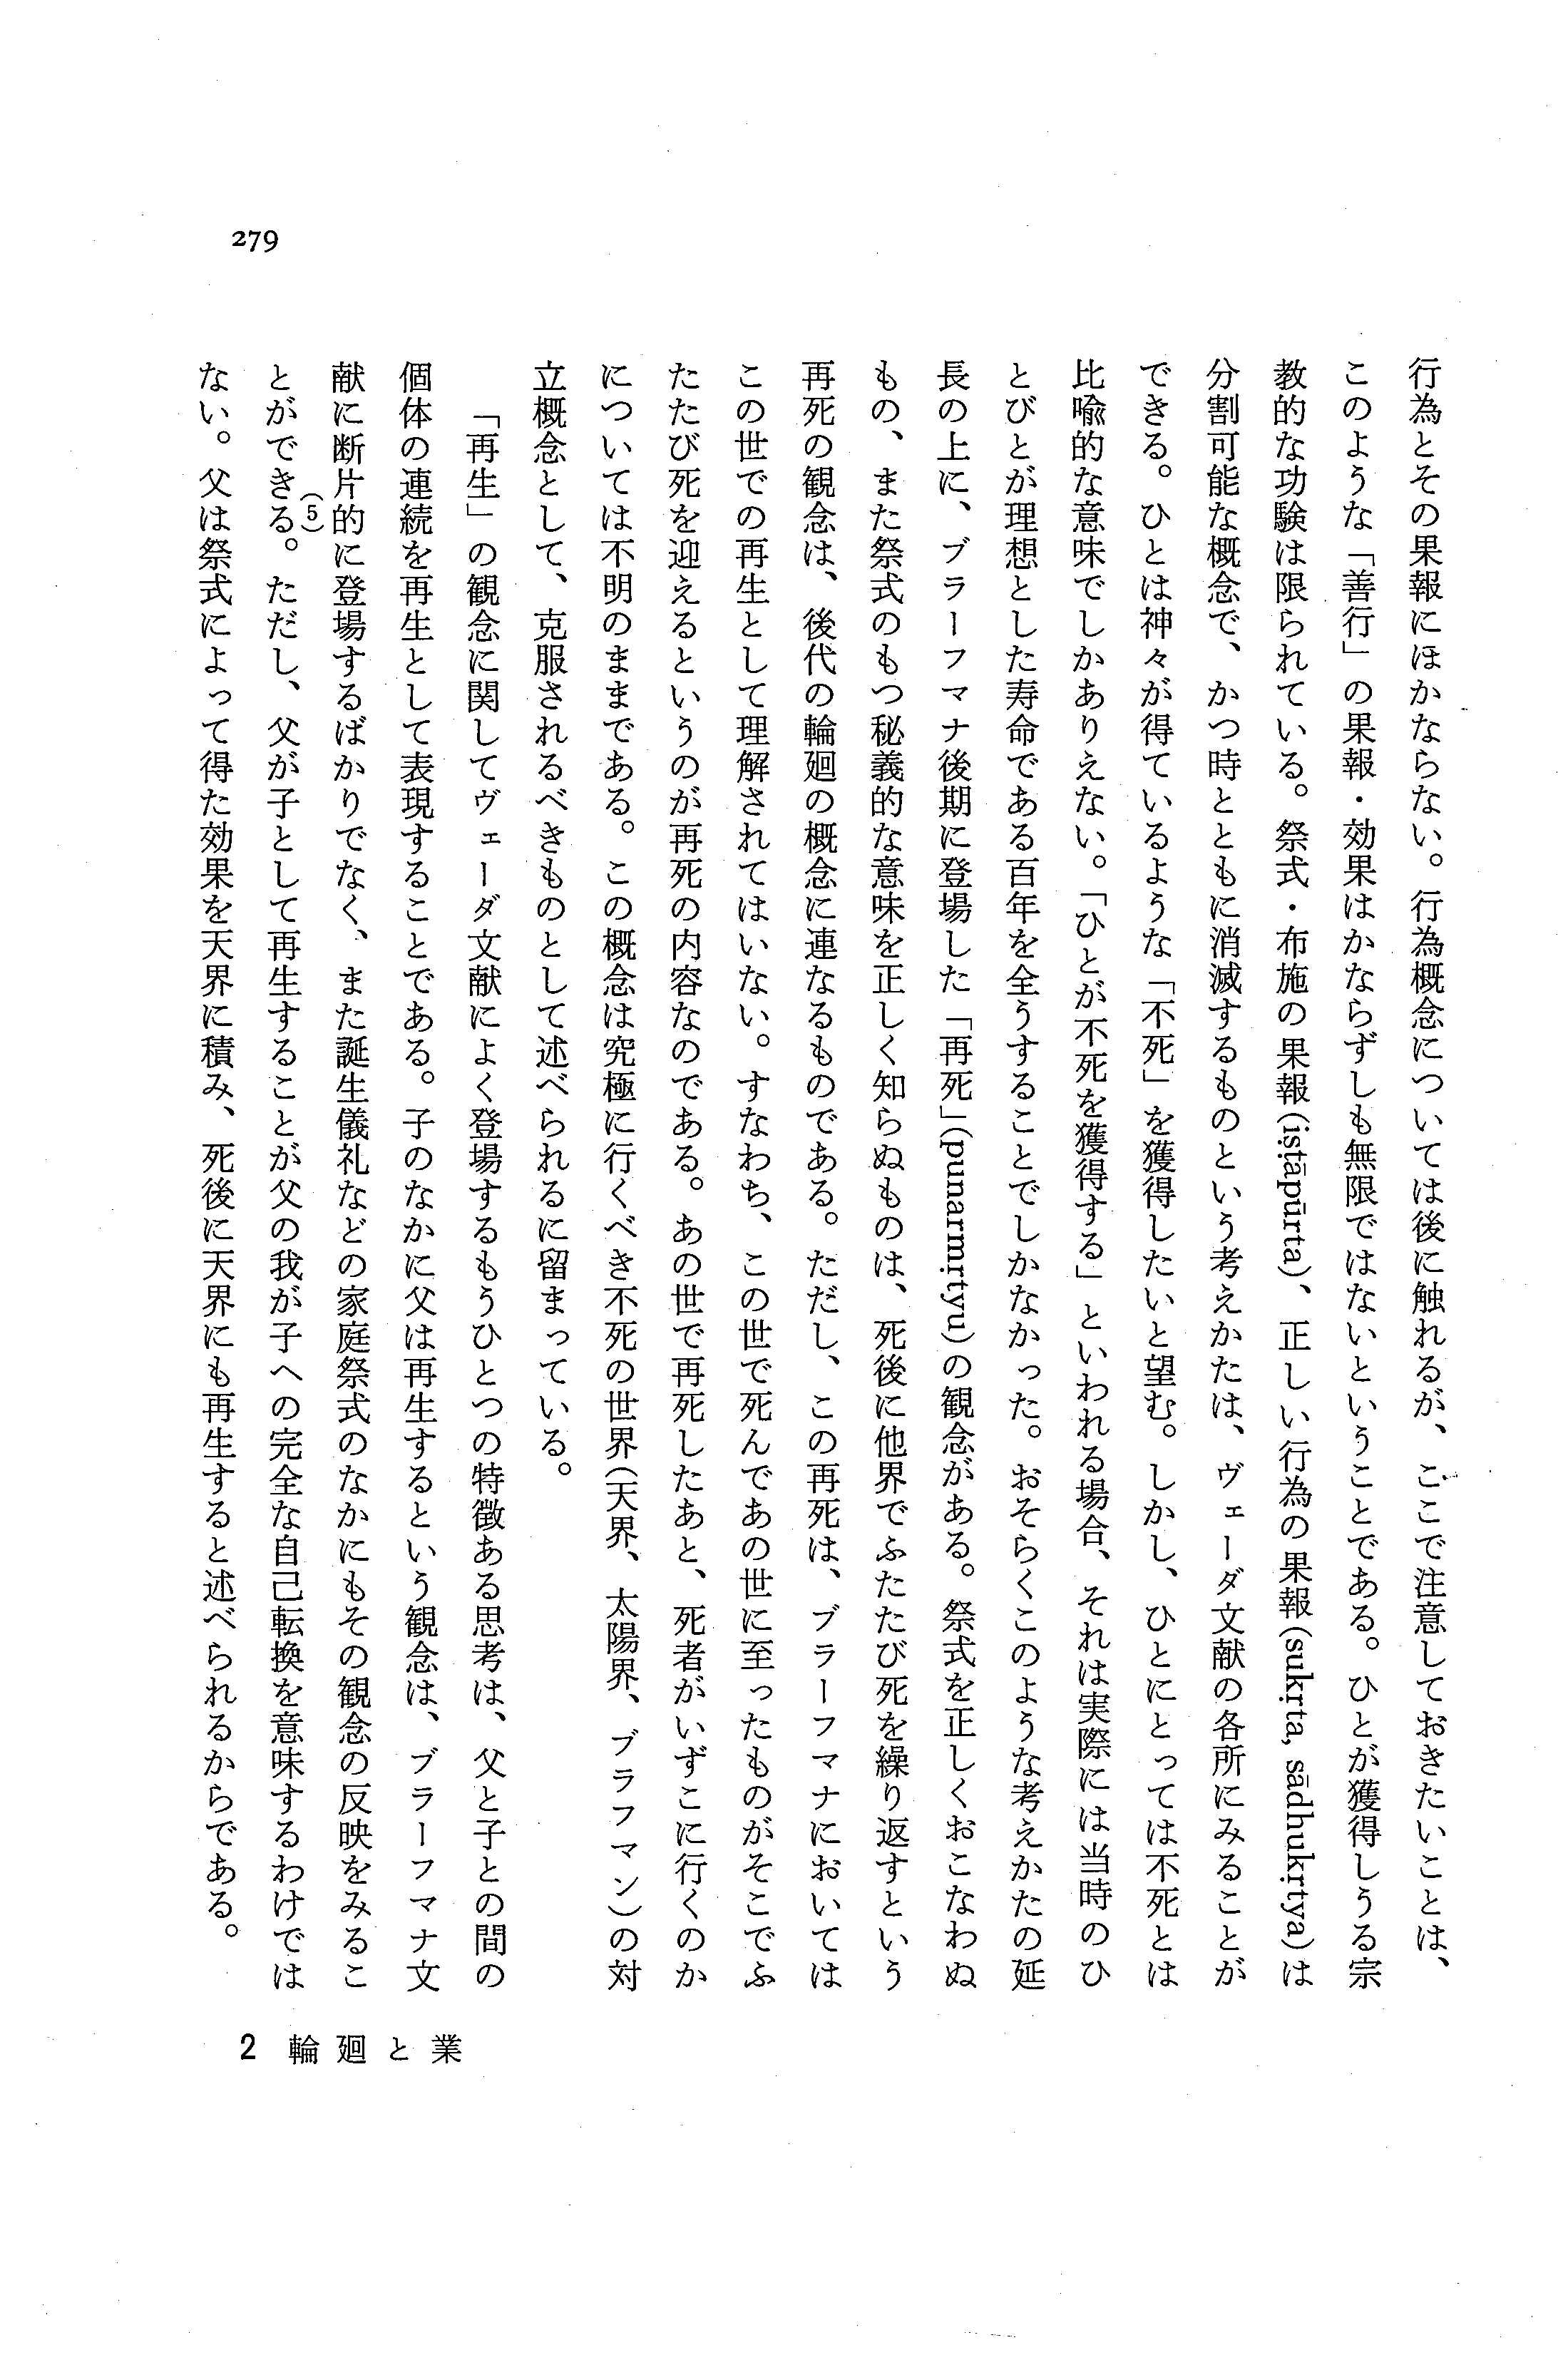 279
行為とその果報にほかならない。行為概念については後に触れるが、ここで注意しておきたいことは、
このような「善行」の果報・効果はかならずしも無限ではないということである。ひとが獲得しうる宗
教的な功験は限られている。祭式・布施の果報(iṣṭāpūrta)、正しい行為の果報(sukṛta, sādhukṛtya)は
分割可能な概念で、かつ時とともに消滅するものという考えかたは、ヴェーダ文献の各所にみることが
できる。ひとは神々が得ているような「不死」を獲得したいと望む。しかし、ひとにとっては不死とは
比喩的な意味でしかありえない。「ひとが不死を獲得する」といわれる場合、それは実際には当時のひ
とびとが理想とした寿命である百年を全うすることでしかなかった。おそらくこのような考えかたの延
長の上に、ブラーフマナ後期に登場した「再死」(punarmṛtyu)の観念がある。祭式を正しくおこなわぬ
もの、また祭式のもつ秘義的な意味を正しく知らぬものは、死後に他界でふたたび死を繰り返すという
再死の観念は、後代の輪廻の概念に連なるものである。ただし、この再死は、ブラーフマナにおいては
この世での再生として理解されてはいない。すなわち、この世で死んであの世に至ったものがそこでふ
たたび死を迎えるというのが再死の内容なのである。あの世で再死したあと、死者がいずこに行くのか
については不明のままである。この概念は究極に行くべき不死の世界(天界、太陽界、ブラフマン)の対
立概念として、克服されるべきものとして述べられるに留まっている。
「再生」の観念に関してヴェーダ文献によく登場するもうひとつの特徴ある思考は、父と子との間の
個体の連続を再生として表現することである。子のなかに父は再生するという観念は、ブラーフマナ文
献に断片的に登場するばかりでなく、また誕生儀礼などの家庭祭式のなかにもその観念の反映をみるこ
とができる(5)。ただし、父が子として再生することが父の我が子への完全な自己転換を意味するわけでは
ない。父は祭式によって得た効果を天界に積み、死後に天界にも再生すると述べられるからである。
2 輪廻と業